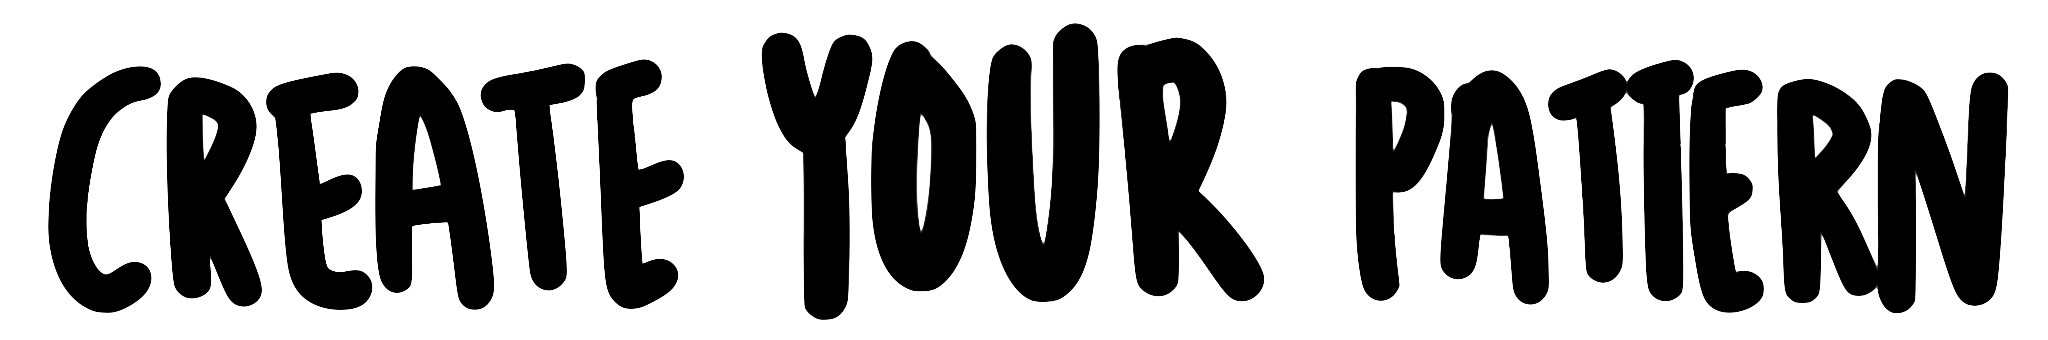 CREATE YOUR PATTERN